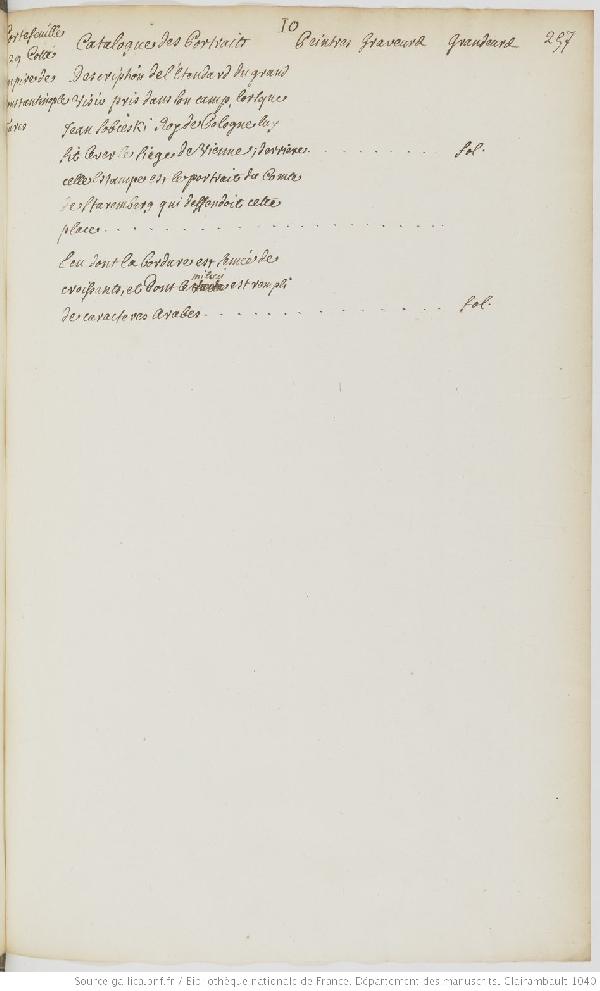 10
Portefeuille
29 Cotté
Empire de
Constantinople
Turcs
Catalogue des Portraits Peintres Graveurs Grandeurs 257
Description de l'Etendard du grand
Visir pris dans son camp, lorsque
Jean Sobieski Roy de Pologne luy
fit lever le siège de Vienne; derriere . . . . . . . . fol.
cette Estampe est le portrait du Comte
de Staremberg qui deffendoit cette
place . . . . . . . . . . . . . . . . . . . .
Ecu dont la bordure est semée de
milieu
croissants, et dont le est rempli
de caracteres Arabes . . . . . . . . . . . . . . fol.
Source gallica.bnf.fr / Bibliothèque nationale de France. Département des manuscrits. Clairambault 1040